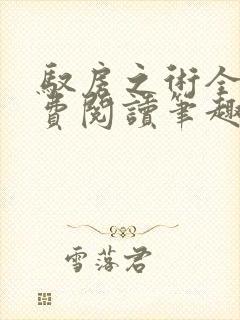 馭房之術全
費閱讀筆趣
雪落君